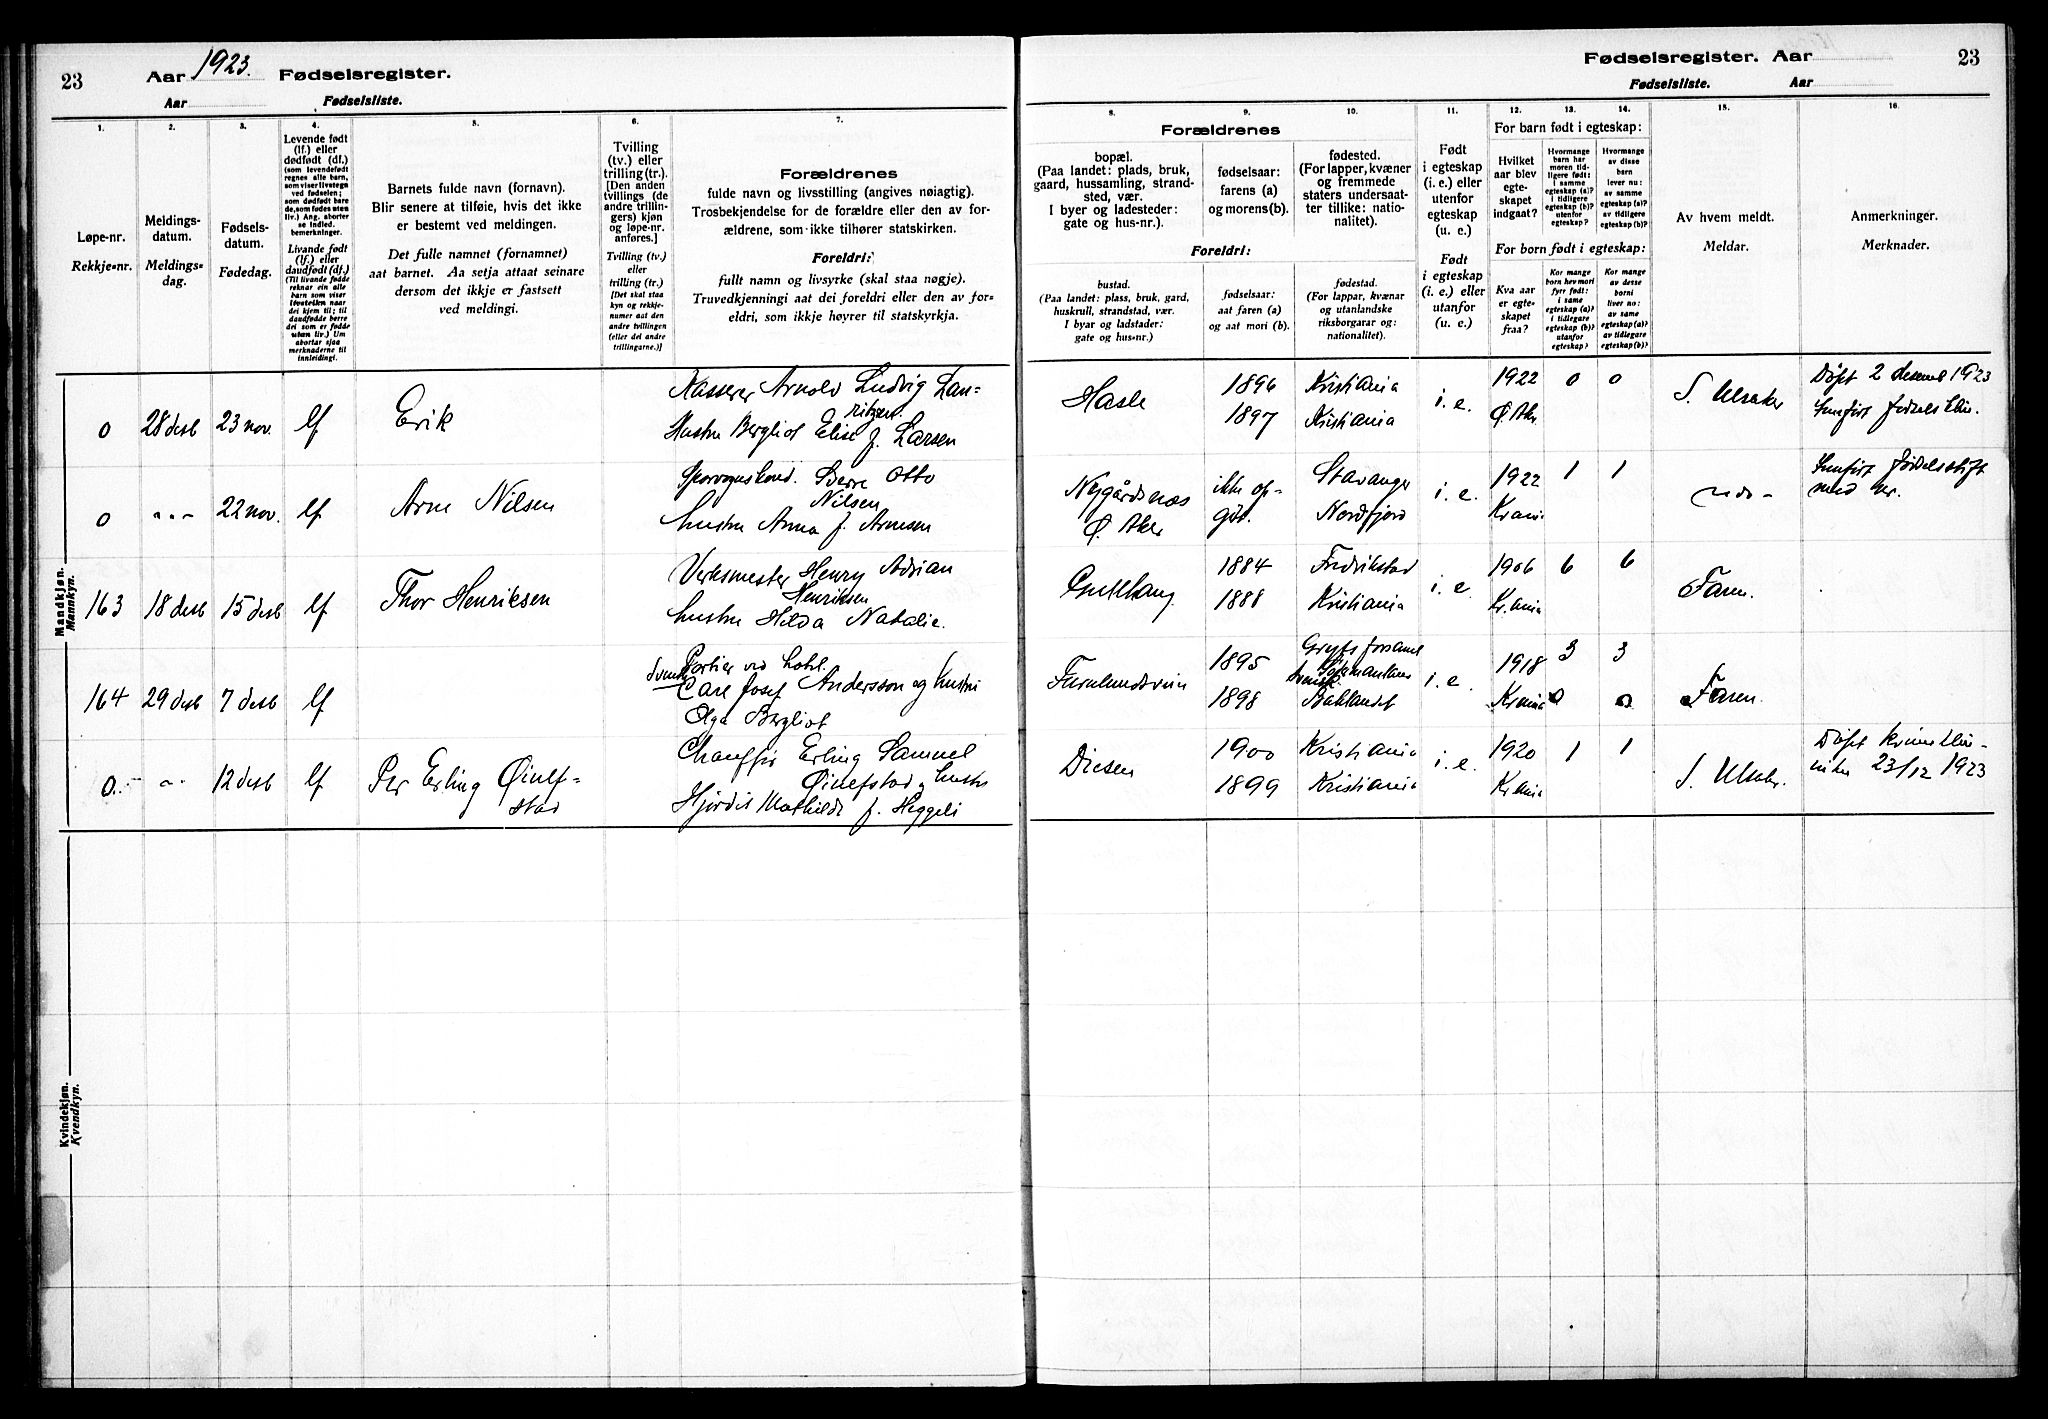 23
Aar 1923. Fødselsregister.
Aar Fødselsliste.
1.
2.
3.
4.
5.
6.
7.
Løpe-nr.
Rekkje-nr.
Meldings-
datum.
Meldings-
dag.
Fødsels-
datum.
Fødedag.
Levende født
(lf.) eller
dødfødt (df.)
(som levendefødt
regnes alle barn,
som viser livstegn
ved fødselen;
som dødfødt bare
de, som fødes uten
liv.) Ang. aborter
se indled.
bemerkninger.
Livande født
(lf.) eller
daudfødt (df.)
(Til livande fødde
reknar ein alle
born som viser
livsteikn naar
dei kjem til; til
daudfødde berre
dei som er fødde
utan liv.) Um
abortar sjaa
merknaderne til
innleidingi.
Barnets fulde navn (fornavn).
Blir senere at tilføie, hvis det ikke
er bestemt ved meldingen.
Det fulle namnet (fornamnet)
aat barnet. Aa setja attaat seinare
dersom det ikkje er fastsett
ved meldingi.
Tvilling
(tv.) eller
trilling (tr.).
[Den anden
tvillings (de
andre trillin-
gers) kjøn
og løpe-nr.
anføres.]
Tvilling (tv.)
eller
trilling (tr.)
[Det skal staa
kyn og rekkje-
numer aat den
andre tvillingen
(eller dei andre
trillingarne.)]
Forældrenes
fulde navn og livsstilling (angives nøiagtig).
Trosbekjendelse for de forældre eller den av for-
ældrene, som ikke tilhører statskirken.
Foreldri:
fullt namn og livsyrke (skal staa nøgje).
Truvedkjenningi aat dei foreldri eller den av for-
eldri, som ikkje høyrer til statskyrkja.
Mandkjøn.
Mannkyn.
0 28 desb 23 nov. lf Erik
Kasserer Arnold Ludvig Lau-
ritzen.
Hustru Bergliot Elise f. Larsen
0 - - - 22 nov. lf Arne Nilsen
Sporvognskond. Sverre Otto
Nilsen
hustru Anna f. Arnesen
163 18 desb 15 desb lf Thor Henriksen
Verksmester Henry Adrian
Henriksen
hustru Hilda Natalie.
164 29 desb 7 desb lf
svensk Portier ved hotel.
Carl Josef Andersson og hustru
Olga Bergliot
0. - - 12 desb lf Per Erling Øinefs-
stad
Chauffør Erling Samuel
Øinefstad, hustru
Hjørdis Mathilde f. Heggeli
Kvindekjøn.
Kvendkyn.
Fødselsregister. Aar 23
Fødselsliste. Aar
8.
9.
10.
11.
12.
13.
14.
15.
16.
Forældrenes
bopæl.
(Paa landet: plads, bruk,
gaard, hussamling, strand-
sted, vær.
I byer og ladesteder:
gate og hus-nr.).
fødselsaar:
farens (a)
og morens (b).
fødested.
(For lapper, kvæner
og fremmede
staters undersaat-
ter tillike: natio-
nalitet).
Foreldri:
bustad.
(Paa landet: plass, bruk, gard,
huskrull, strandstad, vær.
I byar og ladstader:
gate og hus-nr.)
fødselsaar:
aat faren (a)
og aat mori (b).
fødestad.
(For lappar, kvænar
og utanlandske
riksborgarar og:
nationalitet).
Født
i egteskap
(i. e.) eller
utenfor
egteskap
(u. e.)
Født
i egteskap
(i. e.) eller
utanfor
(u. e.)
For barn født i egteskap:
Hvilket
aar blev
egte-
skapet
indgaat?
Hvormange
barn har
moren tid-
ligere født:
i samme
egteskap (a)?
i tidligere
egteskap (b)?
utenfor
egteskap?
Hvormange
av disse
barn
lever nu:
av samme
egteskap (a)?
av tidligere
egteskap (b)?
For born født i egteskap:
Kva aar
er egte-
skapet
fraa?
Kor mange
born hev mori
fyrr født:
i same
egteskap (a)?
i tidlegare
egteskap (b)?
utanfor
egteskap?
Kor mange
av desse
borni
liver no:
av same
egteskap (a)?
av tidlegare
egteskap (b)?
Av hvem meldt.
Meldar.
Anmerkninger.
Merknader.
Hasle 1896 Kristiania i. e. 1922 0 0 S. Ulsaker
1897 Kristiania Ø. Aker
Døpt 2 desemb 1923
Nygårdsnes
Ø. Aker
ikke op-
git.
Stavanger
Nordfjord
i. e. 1922 1 1
Krania
med nr.
1884 Fredrikstad i. e. 1906 6 6 Faren.
1888 Kristiania Krania
Furulundsveien 1895
svensk
i. e. 1918 3 3 Faren.
1898 Baklandet Krania 0 0
Disen 1900 Kristiania i. e. 1920 1 1 S. Ulsaker.
1899 Kristiania Krania
Døpt kvinneklin-
ikken 23/12 1923